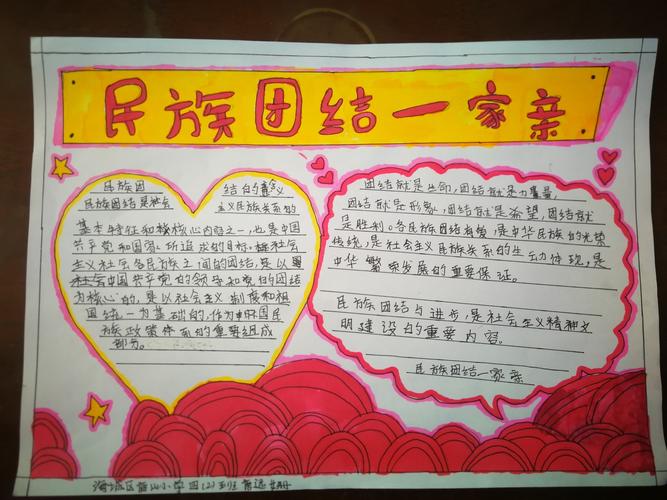 民族团结一家亲
民族团 结的含义
民族团结是社会 主义民族关系的
基本特征和核心内容之一,也是中国
共产党和国家所追求的目标,指社会
主义社会各民族之间的团结,是以
社会中国共产党的领导和党的团结
为核心的,是以社会主义制度和祖
国统一为基础的,作为中国民
族政策体系的重要组成
部分。
团结就是生命,团结就是力量,
团结就是形象,团结就是希望,团结就
是胜利。各民族团结有爱,是中华民族的光荣
传统,是社会主义民族关系的生动体现,是
中华繁荣发展的重要保证。
民族团结与进步,是社会主义精神文
明建设的重要内容。
民族团结一家亲
海城区 山小学四(2)班